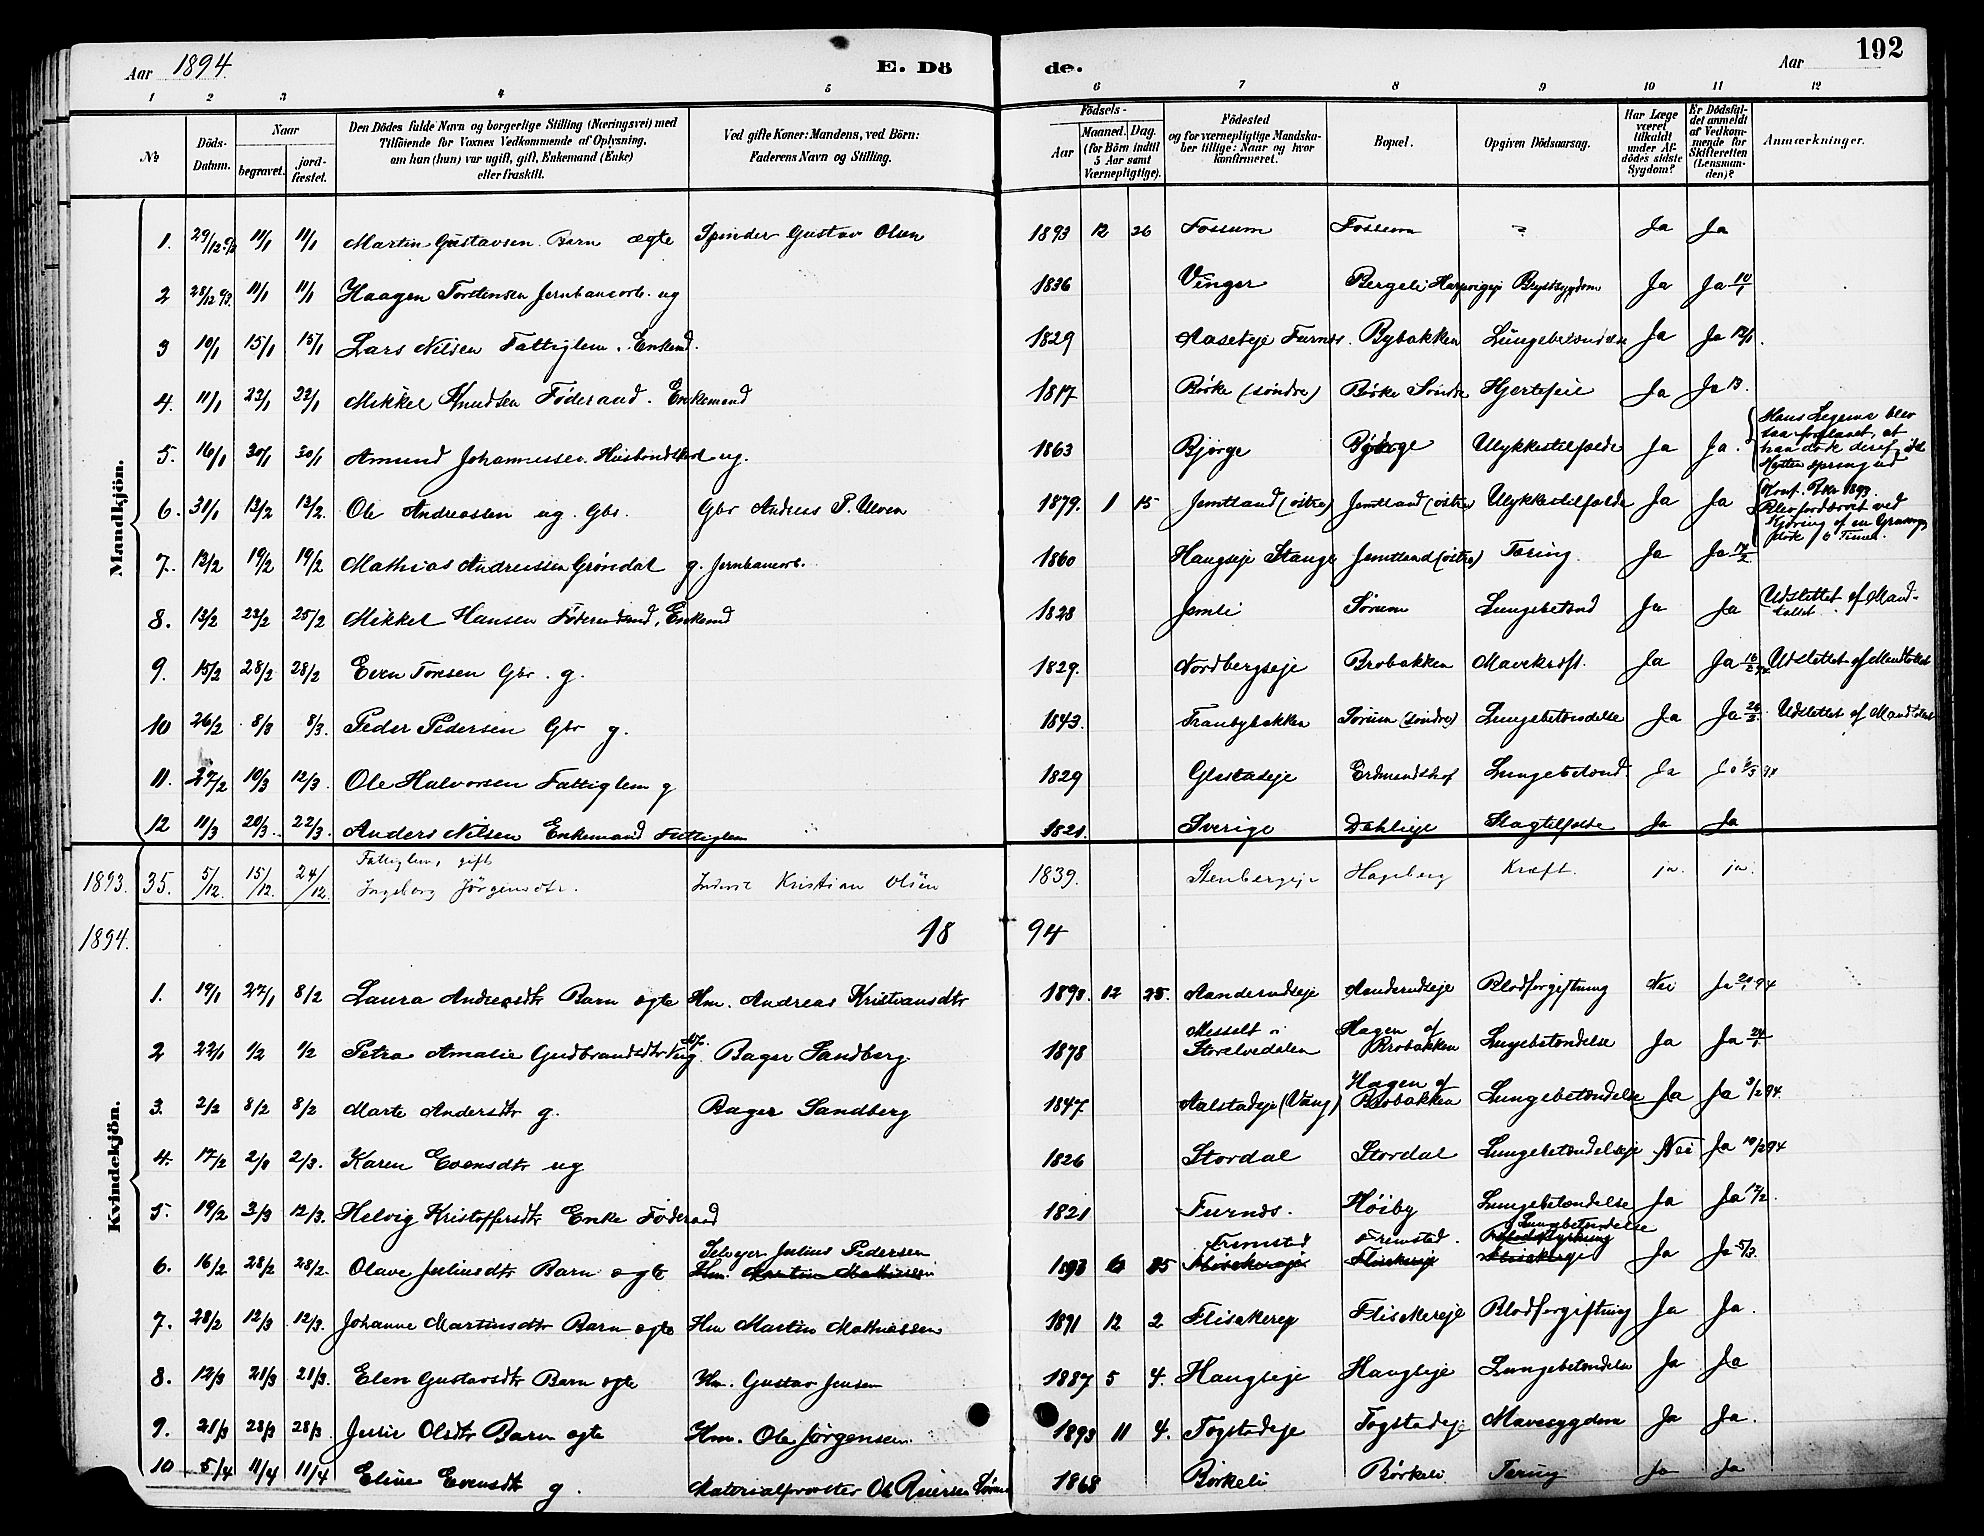 Aar 1894. E. Dö de. Aar 192
1 2 3 4 5 6 7 8 9 10 11 12
№ Döds-Datum. Naar begravet. jord-fæstet. Den Dödes fulde Navn og borgerlige Stilling (Næringsvei) med Tilföiende for Voxnes Vedkommende af Oplysning, om han (hun) var ugift, gift, Enkemand (Enke) eller fraskilt. Ved gifte Koner: Mandens, ved Börn: Faderens Navn og Stilling. Födsels- Aar Maaned. Dag. (for Börn indtil 5 Aar samt Værnepligtige). Födested og for værnepligtige Mandska-ber tillige: Naar og hvor konfirmeret. Bopæl. Opgiven Dödsaarsag. Har Læge været tilkaldt under Af-dödes sidste Sygdom? Er Dödsfal-det anmeldt af Vedkom-mende for Skifteretten (Lensman-den)? Anmærkninger.
Mandkjön.
1. 29/12 11/1 11/1 Martin Gustavsen Barn ægte Spinder Gustav Olsen 1893 12 26 Fossum Fossum ? Ja Ja
2 28/12 93. 11/1 11/1 Haagen Torstensen Jernbanearb. ug 1836 Vinger Bergeli Brystsygdom Ja Ja 10/1
3 10/1 15/1 15/1 Lars Nilsen Fattiglem. Enkemd. 1829 Aaseteje Furnes. Bybakken Ja Ja 12/1
4. 11/1 22/1 22/1 Mikkel Knudsen Føderaad. Enkemand 1817 Børke (søndre) Børke Søndre Hjertefeil Ja Ja 13.
5. 16/1 30/1 30/1 Amund Johannessen ug. 1863 Bjørge Bjørge Ulykkestilfælde Ja Ja. Hans Legeme blev saa forflaaet, at han døk deraf,
6. 31/1 13/2 13/2. Ole Andreassen ug. Gbr. Gbr Andreas P. Ulven 1879. 1 15 Jemtland (østre) Jemtland (østre) Ulykkestilfælde Ja Ja 1893.
7. 13/2 19/2 19/2 Mathias Andreassen Grønsdal g. Jernbanearb. 1860 Haugseje Stange Jemtland (østre) Tæring. Ja Ja 14/2
8. 13/2 22/2 25/2 Mikkel Hansen Føderaadsmd, Enkemd 1828 Jemli Sørum Lungebetænd Ja Ja Udslettet af Mand-tallet.
9. 15/2 28/2 28/2 Even Tonsen Gbr. g. 1829. Nordbergseje Brobakken Mavekræft. Ja Ja 16/2 Udslettet af Mandtallet
10 26/2 8/3 8/3. Peder Pedersen Gbr g. 1843. Tranbybakken Sørum (søndre) Lungebetændelse Ja Ja 26/3 Udslettet af Mandtallet
11. 27/2 10/3 12/3. Ole Halvorsen Fattiglem g 1829 Glestadeje Erdmandshof Lungebetænd. Ja Ja 2/3 94
12 11/3 20/3. 22/3. Anders Nilsen Enkemand Fattiglem 1821 Sverige Dahleje Slagtilfælde Ja Ja
1893. 35. 5/12. 15/12. 24/12. Fattiglem, gift Ingeborg Jørgensdtr. Inderst Kristian Olsen 1839. Stenbergeje Hageberg Kræft. ja. ja.
1894. 18 94
Kvindekjön.
1. 19/1 27/1 8/2 Laura Andreasdtr Barn ægte Hm. Andreas Kristiansdtr 1893. 12 25. Aanderudseje Aanderudseje Blodforgiftning Nei Ja 20/1 94
2 22/1 1/2 1/2 Petra Amalie Gudbrandsdtr ug. Bager Sandberg 1878 Messelt i Storelvedalen Hagen af Brobakken Lungebetændelse Ja Ja 24/1
3. 2/2 8/2 8/2 Marte Andersdtr g. Bager Sandberg 1847 Aalstadeje (Vang) Hagen af Brobakken Lungebetændelse Ja Ja 3/2 94.
4. 17/2 2/3 2/3. Karen Evensdtr ug 1826 Stordal Stordal Lungebetændelse Nei Ja 19/2 94
5. 19/2 3/3 12/3. Helvig Kristoffersdtr Enke Føderaad 1821 Furnes. Høiby Lungebetændelse Ja Ja 12/2.
6. 16/2 28/2 28/2. Olave Juliusdtr Barn ægte Selveyer Julius Pedersen Hm. Martin Mathiassen 1893 6 25 Frenstad Flisakereje Frenstad. Flisakereje Lungebetændelse Ja Ja 5/3.
7. 28/2 12/3 12/3. Johanne Martinsdtr Barn ægte Hm Martin Mathiassen 1891 12 2 Flisakereje Flisakereje Blodforgiftning Ja Ja.
8. 12/3 21/3 21/3. Elen Gustavsdtr Barn ægte Hm. Gustav Jensen 1887 5 4. Haugseje Haugseje Lungebetændelse Ja Ja
9. 21/3 28/3 28/3. Julie Olsdtr Barn ægte Hm. Ole Jørgensen. 1893 11 4. Fogstadeje Fogstadeje Mavesygdom Ja Ja.
10 5/4 11/4 11/4 Eline Evensdtr g. Materialforvalter Ole 1868 Børkeli Børkeli Tæring Ja Ja